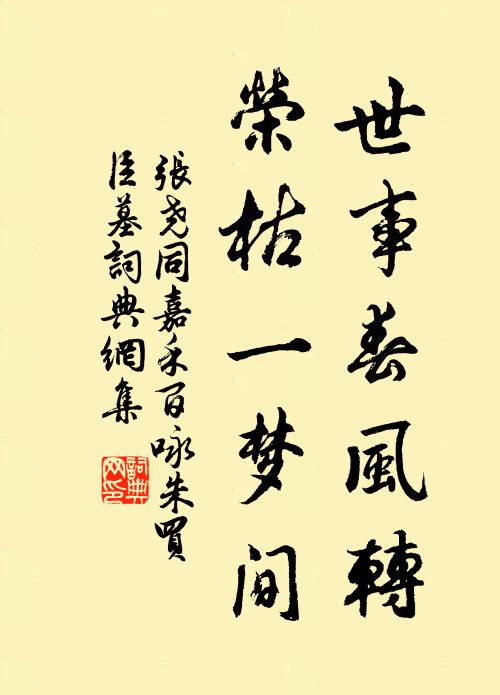 世事春風轉
榮枯一梦間
張尧同嘉禾百咏朱買
臣墓詞典網集
詞典
网印